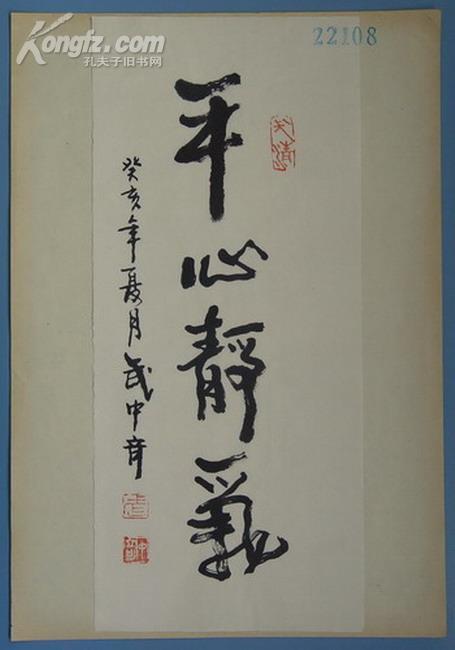 Kongfz.com
孔夫子旧书网
22108
平心靜氣
癸亥年夏月 武中奇